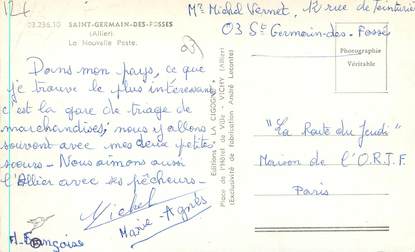 124
Mr Michel Vernet, 12 rue de
03 St Germain-des-Fossés
03.236.10 SAINT-GERMAIN-DES-FOSSES
(Allier)
La Nouvelle Poste.
Photographie
Véritable
Dans mon pays, ce que
je trouve le plus intéressant
c'est la gare de triage de
marchandises; nous y allons
souvent avec mes deux petites
sœurs - Nous aimons aussi
l'Allier avec ses pêcheurs -
Michel
Marie-Agnès
Françoise
Editions "LA CIGOGNE"
Place de l'Hôtel de Ville - VICHY (Allier)
(Exclusivité de Fabrication André Leconte)
"La Route du Jeudi"
Maison de l'O.R.T.F.
Paris